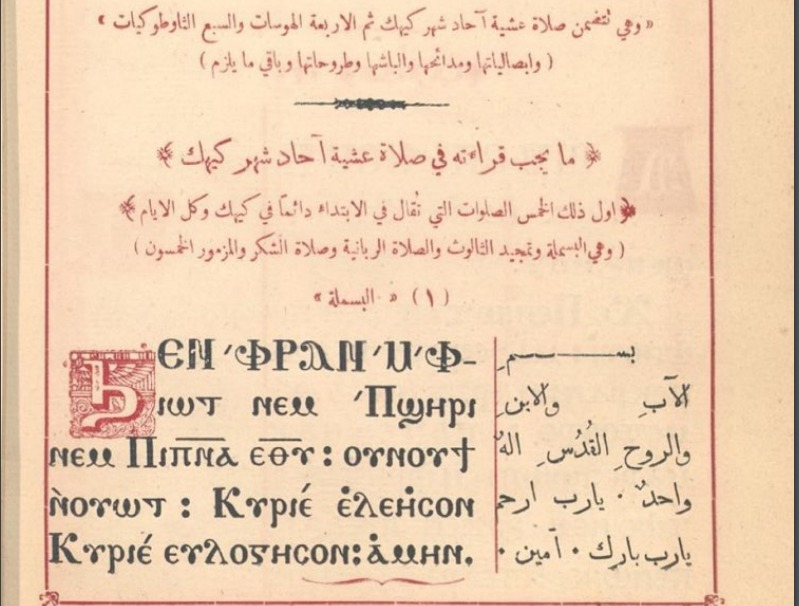 « وهي تتضمن صلاة عشية آحاد شهر كيهك ثم الاربعة الهوسات والسبع الثاوطوكيات »
( وابصالياتها ومدائحها والباشها وطروحاتها وباقي ما يلزم )
﴿ ما يجب قراءته في صلاة عشية آحاد شهر كيهك ﴾
﴿ اول ذلك الخمس الصلوات التي تُقال في الابتداء دائمًا في كيهك وكل الايام ﴾
( وهي البسملة وتمجيد الثالوث والصلاة الربانية وصلاة الشكر والمزمور الخمسون )
( ١ ) « البسملة »
ϦⲈⲚ ̀ⲪⲢⲀⲚ ̀Ⲙ̀Ⲫ-
ⲓⲱⲧ ⲛⲉⲙ ̀Ⲡϣⲏⲣⲓ
ⲛⲉⲙ Ⲡⲓⲡ̅ⲛ̅ⲁ̅ ⲉ̅ⲑ̅ⲩ̅ : ⲟⲩⲛⲟⲩϯ
ⲛ̀ⲟⲩⲱⲧ : Ⲕⲩⲣⲓⲉ́ ⲉ̀ⲗⲉⲏ̀ⲥⲟⲛ
Ⲕⲩⲣⲓⲉ́ ⲉⲩⲗⲟⲅⲏⲥⲟⲛ: ⲁ̀ⲙⲏⲛ.
بســـــم
الآبِ والابنِ
والروحِ القُدُسِ الهٌ
واحدٌ · يارب ارحم
يارب بارك · آمين ·